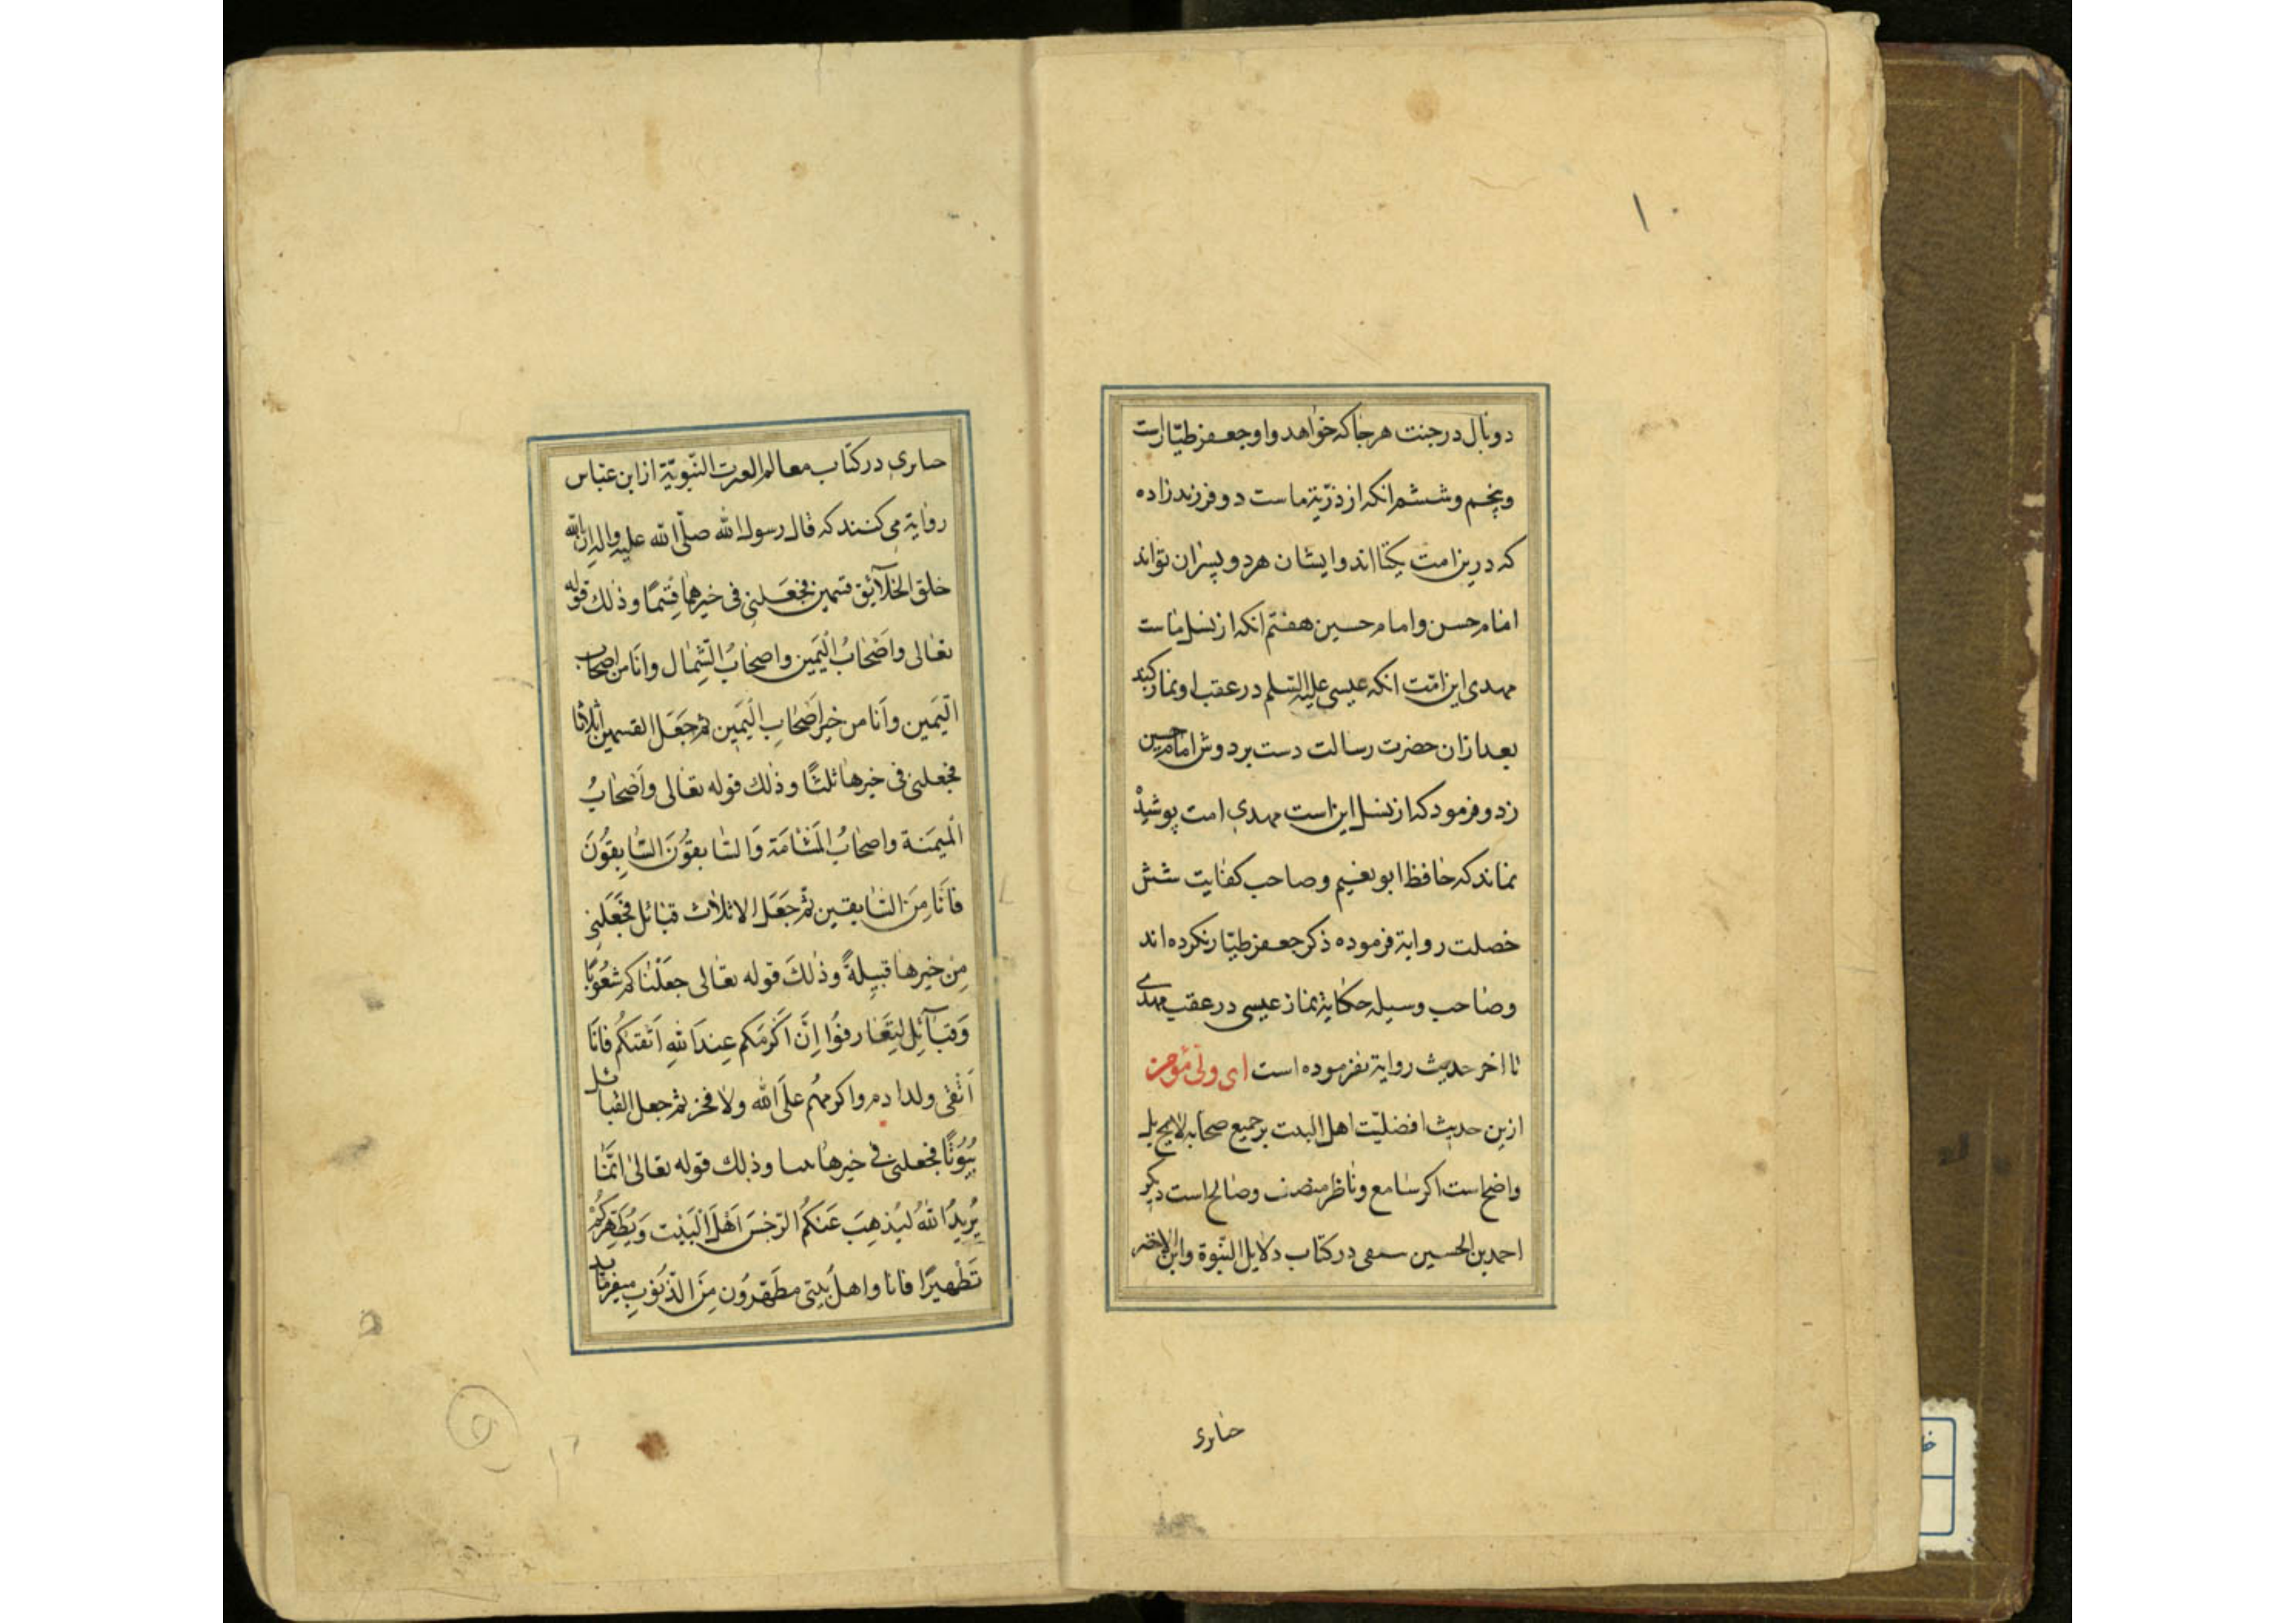 ۱۰
دو بال در جنت هر جا که خواهد و او جعفر طیّار است
و پنجم و ششم انکه از ذرّیة ماست دو فرزندزاده
که درین امت یکتا اند و ایشان هر دو پسران تواند
امام حسن و امام حسین هفتم انکه از نسل ماست
مهدی این امّت انکه عیسی علیه السّلم در عقب او نماز کند
بعد ازان حضرت رسالت دست بر دوش امام حسین
زد و فرمود که از نسل این است مهدی امت پوشیدْ
نماند که حافظ ابو نعیم و صاحب کفایت شش
خصلت روایة فرموده ذکر جعفر طیّار نکرده اند
و صاحب وسیله حکایة نماز عیسی در عقب مهدی
تا اخر حدیث روایة نفرموده است ای ولی مؤمن
ازین حدیث افضلیّت اهل البیت بر جمیع صحابه لایح بل
واضح است اکر سامع و ناظر منصف و صالح است دیکر
احمد بن الحسین سمعی در کتاب دلایل النّبوة و ابن الاخضر
حنابری
حنابری در کتاب معالم العترت النّبویّة از ابن عبّاس
روایة می کنند که قال رسول الله صلّی الله علیه واله ان الله
خلق الخلآئق قسمین فجَعَلنی فی خیرهما قِسْمًا و ذلك قوله
تعالی واَصْحابُ الْیَمین واصحابُ الشِّمال وانا من اصحاب
الْیَمین واَنا من خیر اَصْحابِ الْیَمین ثم جَعَلَ القسمین اثلاثا
فجعلنی فی خیرها ثلثًا و ذلك قوله تعالی واَصْحابُ
الْمَیمَنة واصحابُ الْمَشْامَة وَالسّابقُونَ السّابِقُونَ
فاَنَا مِنَ السّابقین ثم جَعَلَ الاثلاث قبائل فجَعَلَنی
مِن خیرها قبیلةً وذلكَ قوله تعالی جعَلْناکم شُعُوبًا
وَقبآئِل لِتَعارفُوا اِنَّ اَکرَمَکم عِندَ اللهِ اَتْقیٰکُم فانَا
اَتْقی ولد ادم واکرمهُم عَلَی الله ولا فخر ثم جعل القبائل
بُیُوتًا فجعلنی فی خیرها بیتا وذلك قوله تعالیٰ انَّما
یُریدُ اللهُ لیُذهِبَ عَنکُم الرّجْسَ اَهْلَ الْبَیْت وَیُطَهِّرَکُمْ
تَطْهیرًا فانا واهلُ بیتی مطَهّرُون مِنَ الذّنُوبِ میفرماید